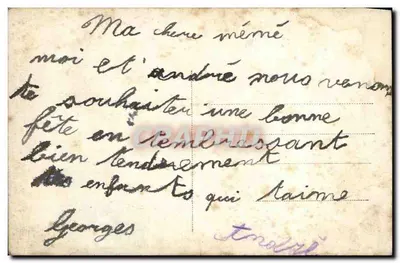 Ma chere mémé
moi et andré nous venons
te souhaiter une bonne
fête en tembrassant
bien tendrement
tes enfants qui taime
Georges
André